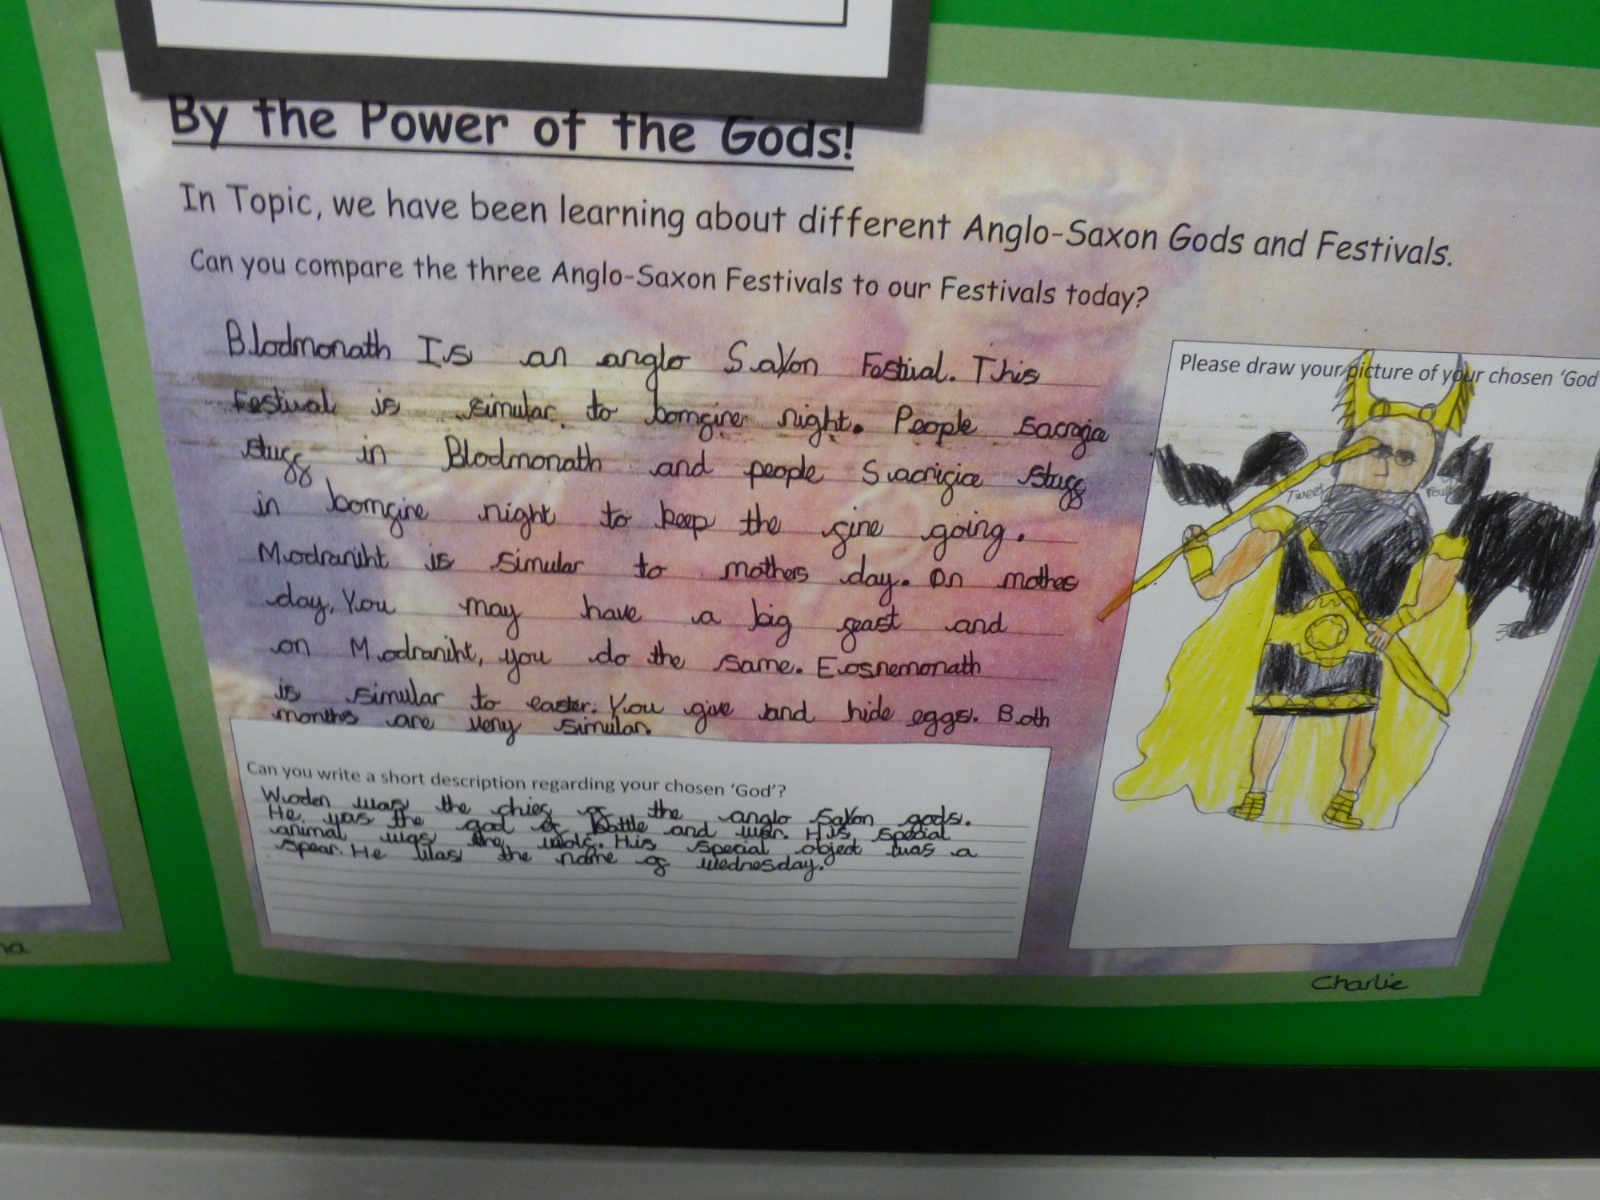 By the Power of the Gods!
In Topic, we have been learning about different Anglo-Saxon Gods and Festivals.
Can you compare the three Anglo-Saxon Festivals to our Festivals today?
Blodmonath Is an anglo Saxon Festival. This
Festival is simular to bomfire night. People sacrafice
stuff in Blodmonath and people Sacrifice stuff
in bomfire night to keep the fire going.
Modraniht is simular to mothers day. On mothes
day, You may have a big feast and
on Modraniht, you do the same. Eosnemonath
is simular to easter. You give and hide eggs. Both
months are very simular.
Can you write a short description regarding your chosen 'God'?
Woden was the chief of the anglo Saxon gods.
He was the god of Battle and war. His special
animal was the wolf. His special object was a
spear. He was the name of wednesday.
Please draw your picture of your chosen 'God
Tweet
Charlie